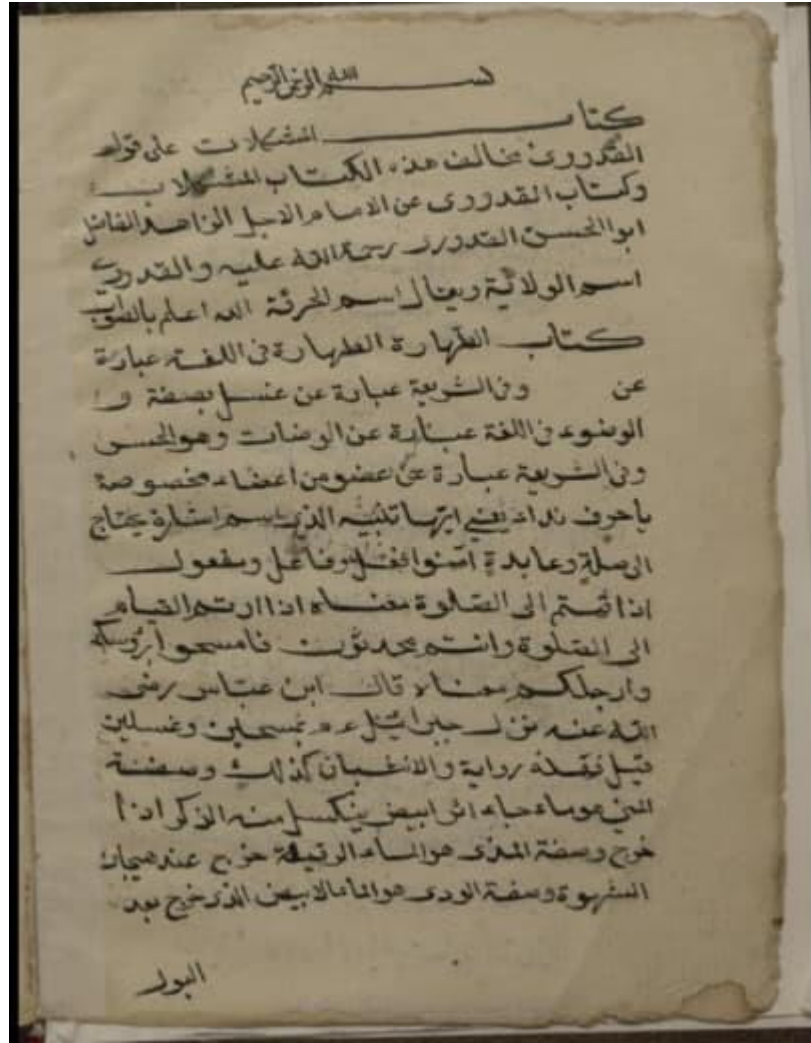 بسم الله الرحمن الرحيم
كتاب المشكلات على قول
القدوري مخالف هذه الكتاب المشكلات
وكتاب القدوري عن الامام الاجل الزاهد الفاضل
ابو الحسن القدوري رحمة الله عليه والقدوري
اسم الولاية ويقال اسم الحرثة الله اعلم بالصواب
كتاب الطهارة الطهارة فى اللغة عبارة
عن وفى الشريعة عبارة عن غسل بصفة و
الوضوء فى اللغة عبارة عن الوضات وهو الحسن
وفى الشريعة عبارة عن عضو من اعضاء مخصوصة
يا حرف نداء يعني ايها تنبيه الذين اسم اشارة يحتاج
الى صلة وعايدة امنوا فعل وفاعل ومفعول
اذا قمتم الى الصلوة معناه اذا اردتم القيام
الى الصلوة وانتم محدثون فامسحوا برؤسكم
وارجلكم معناه قال ابن عباس رضى
الله عنه نزل جبرائيل ع م بمسحين وغسلين
قيل نقله رواية والانغسان كذلك وصفة
المني هو ماء ابيض ينكسل منه الذكر اذا
خرج وصفة المذى هو الماء الرقيقة خرج عند هيجان
الشهوة وصفة الودى هو الماء الابيض الذى خرج بعد
البول